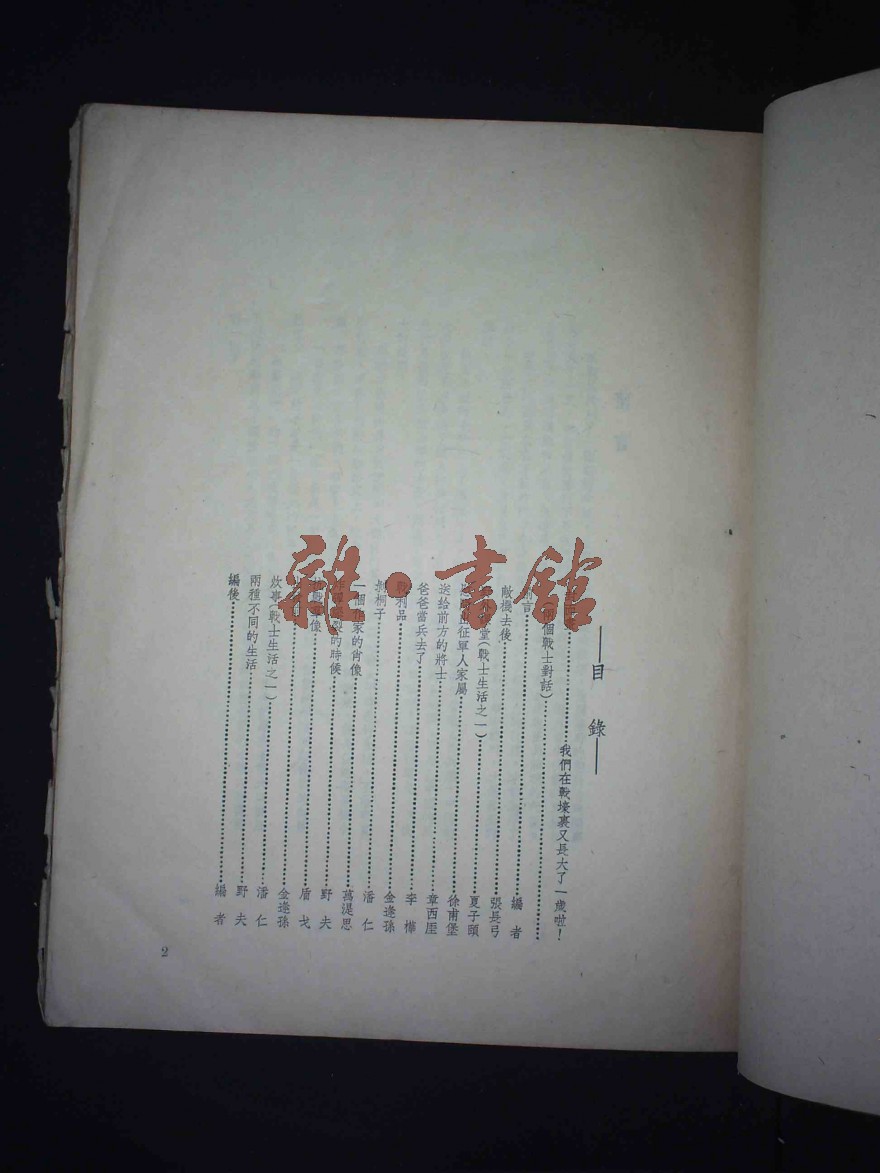 目錄
我們在戰壕裏又長大了一歲啦！
個戰士對話）
言 編者
敵機去後 張長弓
堂（戰士生活之一） 夏子頤
征軍人家屬 徐甫堡
送給前方的將士 章西厓
爸爸當兵去了 李樺
利品 金逢孫
桐子 潘仁
一個作家的肖像 萬湜思
的時候 野夫
像 盾戈
金逢孫
炊事（戰士生活之一） 潘仁
兩種不同的生活 野夫
編後 編者
2
雜·書館